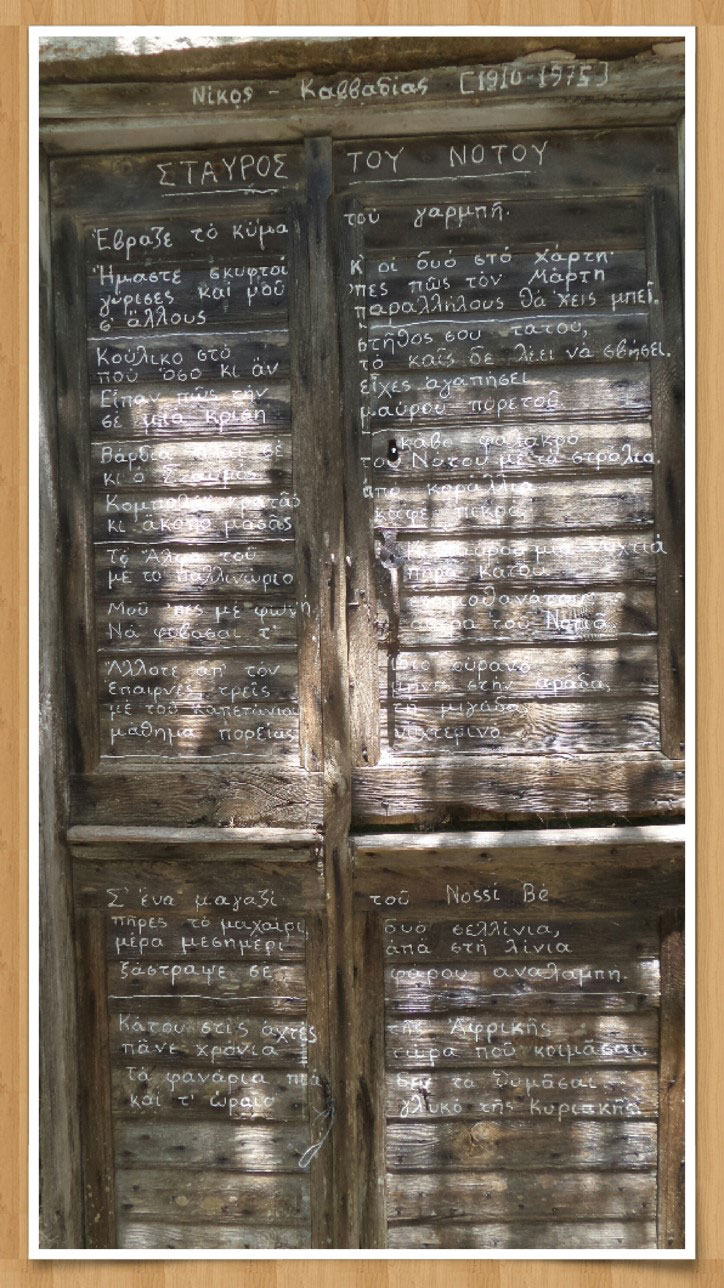 Νίκος - Καββαδίας [1910-1975]
ΣΤΑΥΡΟΣ ΤΟΥ ΝΟΤΟΥ
Ἔβραζε τό κῦμα τοῦ γαρμπῆ.
Ἤμαστε σκυφτοί κ' οἱ δυό στό χάρτη·
γύρισες καί μοῦ 'πες πῶς τόν Μάρτη
σ' ἄλλους παραλλήλους θά 'χεις μπεῖ.
Κούλικο στό στῆθος σου τατού,
πού ὅσο κι ἄν τό καῖς δέ λέει νά σβήσει.
Εἶπαν πῶς τήν εἶχες ἀγαπήσει
σέ μιά κρίση μαύρου πυρετοῦ
Βάρδια πλάι σέ κάβο φαλακρό
κι ὁ Σταυρός τοῦ Νότου μέ τά στράλια.
Κομπολόι κρατᾶς ἀπό κοράλλια
κι ἄκοπο μασᾶς καφέ πικρό
Τό Ἄλφα τοῦ Κενταύρου μιά νυχτιά
μέ τό παλλινώριο πῆρα κάτου
Μοῦ 'πες μέ φωνή ἑτοιμοθανάτου
Νά φοβᾶσαι τ' ἄστρα τοῦ Νοτιᾶ
Ἄλλοτε ἀπ' τόν ἴδιο οὐρανό
ἔπαιρνες τρεῖς μῆνες στήν ἀράδα,
μέ τοῦ καπετάνιου τή μιγάδα
μάθημα πορείας νυχτερινό.
Σ' ἕνα μαγαζί τοῦ Nossi Bé
πῆρες τό μαχαίρι, δυό σελλίνια,
μέρα μεσημέρι ἀπά στή λίνια
ξάστραψε σε φάρου αναλαμπη.
Κάτου στίς ἀχτές τῆς Ἀφρικῆς
πᾶνε χρόνια τώρα πού κοιμᾶσαι
Τά φανάρια πιά δέν τά θυμᾶσαι
καί τ' ὡραῖο γλυκό τῆς Κυριακῆς.